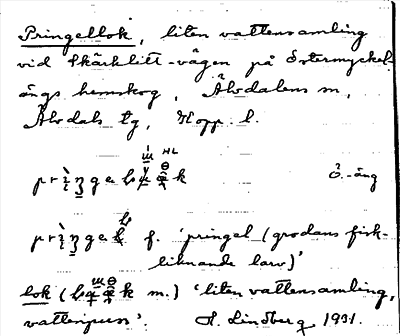 Pringellok, liten vattensamling
vid Skärklitt-vägen på Östermyckel-
ängs hemskog, Älvdalens sn,
Älvdals tg, Kopp. l.
Ö.-äng
f. 'pringel (grodans fisk-
liknande larv)'
lok (
m.) 'liten vattensamling,
vattenpuss'.
H. Lindberg 1931.